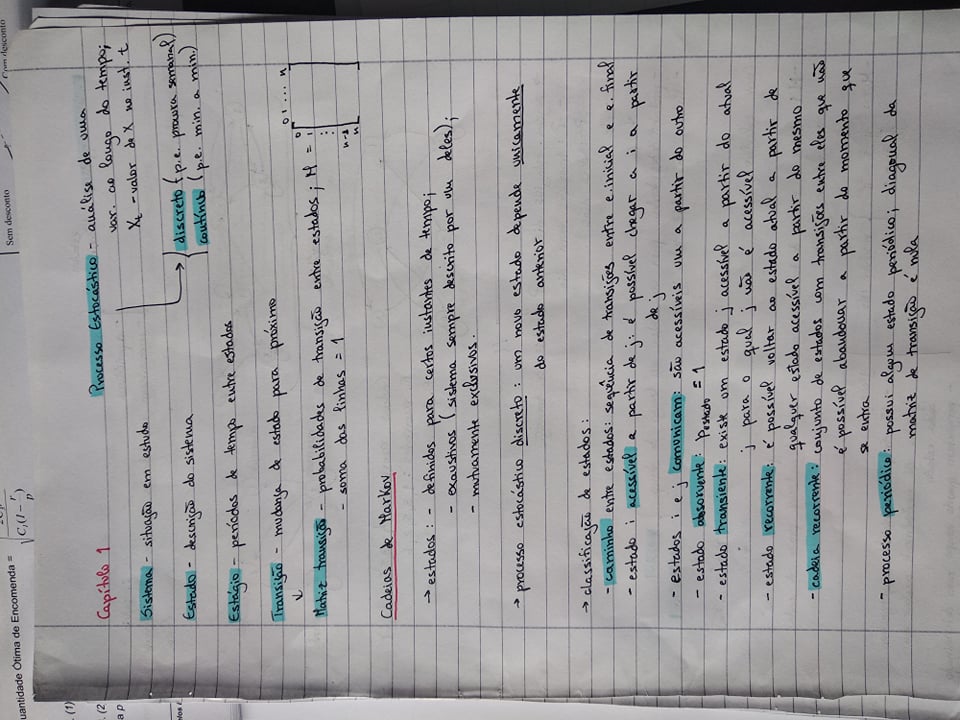 uantidade Ótima de Encomenda =
C₁(1- r/p)
Sem desconto
Com desconto
(1)
(2
a p
Capítulo 1
Processo Estocástico - análise de uma
var. ao longo do tempo;
Xt - valor de X no inst. t
Sistema - situação em estudo
discreto (p.e. procura semanal)
contínuo (p.e. min. a min.)
Estado - descrição do sistema
Estágio - períodos de tempo entre estados
Transição - mudança de estado para próximo
Matriz transição - probabilidades de transição entre estados; M =
0 1 ... n
0
1
⋮
n-1
n
- soma das linhas = 1
Cadeias de Markov
→ estados: - definidos para certos instantes de tempo;
- exaustivos (sistema sempre descrito por um deles);
- mutuamente exclusivos.
→ processo estocástico discreto: um novo estado depende unicamente
do estado anterior
→ classificação de estados:
- caminho entre estados: sequência de transições entre e. inicial e e. final
- estado i acessível a partir de j: é possível chegar a i a partir
de j
- estados i e j comunicam: são acessíveis um a partir do outro
- estado absorvente: Pestado = 1
- estado transiente: existe um estado j acessível a partir do atual
j para o qual j não é acessível
- estado recorrente: é possível voltar ao estado atual a partir de
qualquer estado acessível a partir do mesmo
- cadeia recorrente: conjunto de estados com transições entre eles que não
é possível abandonar a partir do momento que
se entra
- processo periódico: possui algum estado periódico; diagonal da
matriz de transição é nula